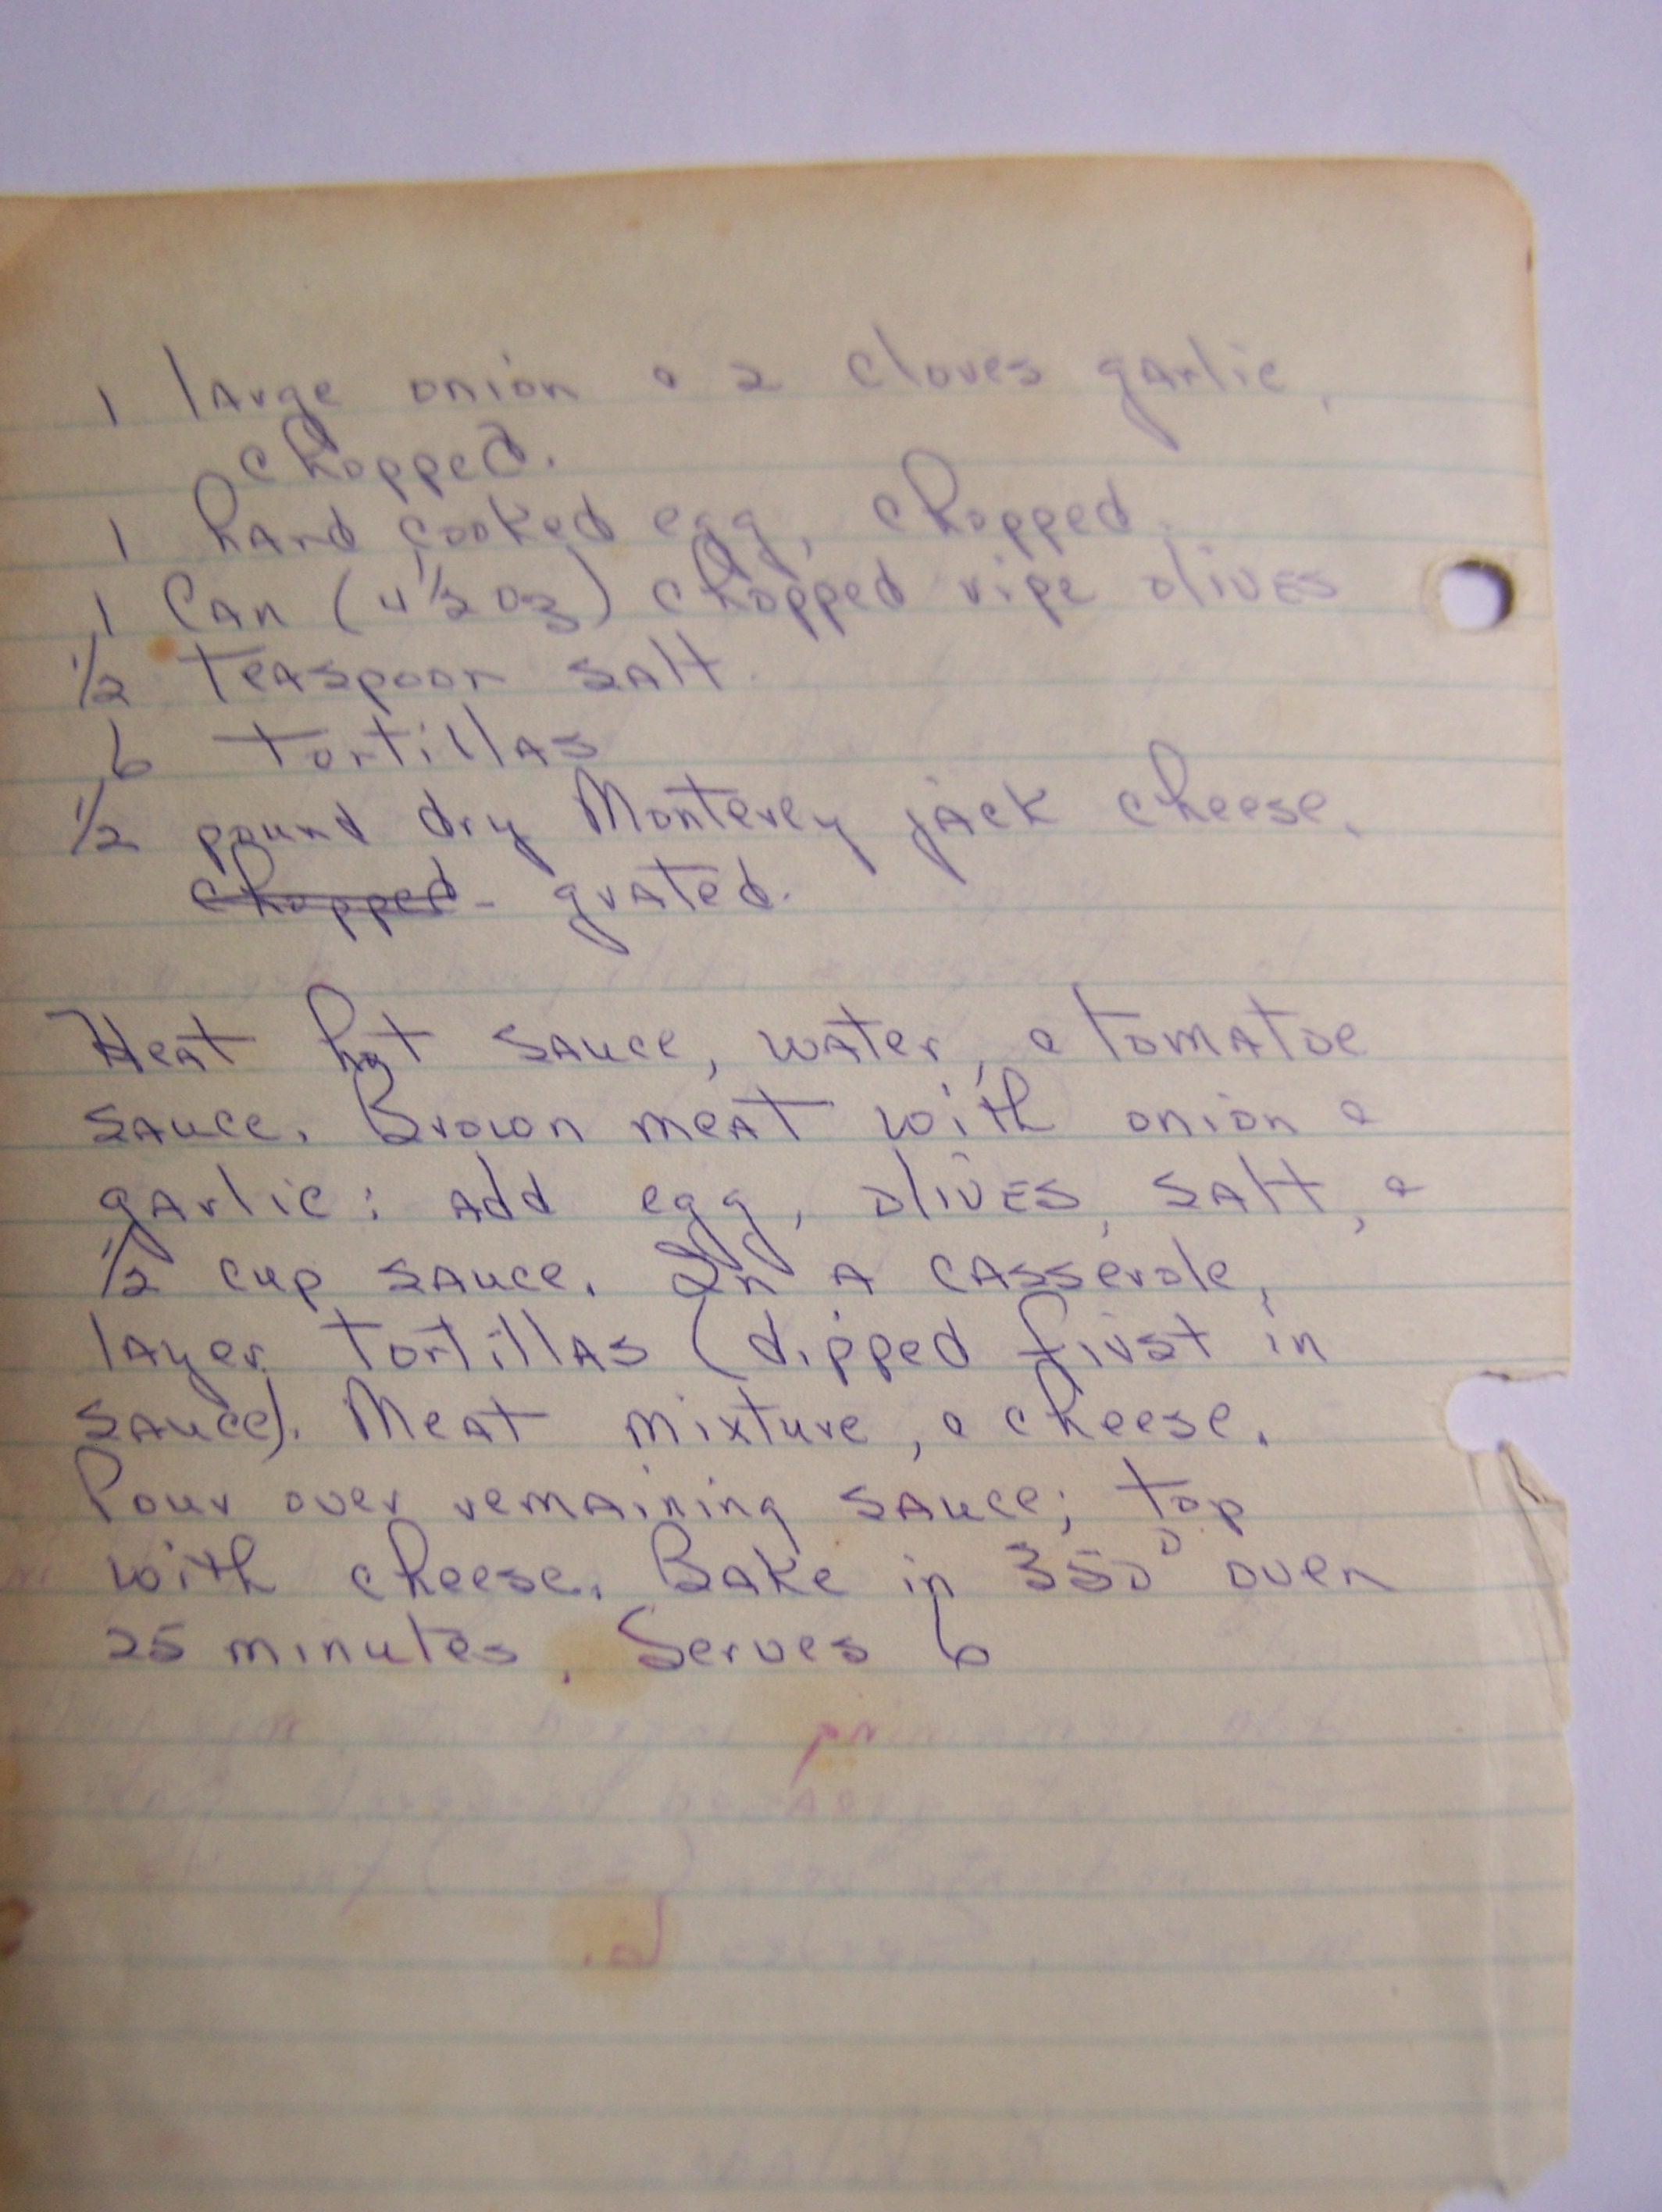 1 large onion & 2 cloves garlic,
chopped.
1 hard cooked egg, chopped.
1 Can (4 1/2 oz) chopped ripe olives
1/2 teaspoon salt.
6 tortillas
1/2 pound dry Monterey jack cheese.
chopped - grated.
Heat hot sauce, water, & tomatoe
sauce. Brown meat with onion &
garlic; add egg, olives, salt, &
1/2 cup sauce. In a casserole,
layer tortillas (dipped first in
sauce). Meat mixture, & cheese.
Pour over remaining sauce; top
with cheese. Bake in 350° oven
25 minutes. Serves 6